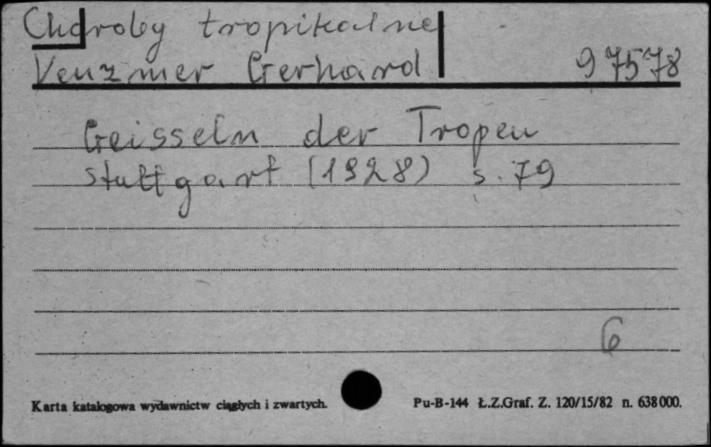 Choroby tropikalne
Venzmer Gerhard 97578
Geisseln der Tropen
Stuttgart (1928) s. 79
6
Karta katalogowa wydawnictw ciągłych i zwartych. Pu-B-144 Ł.Z.Graf. Z. 120/15/82 n. 638000.